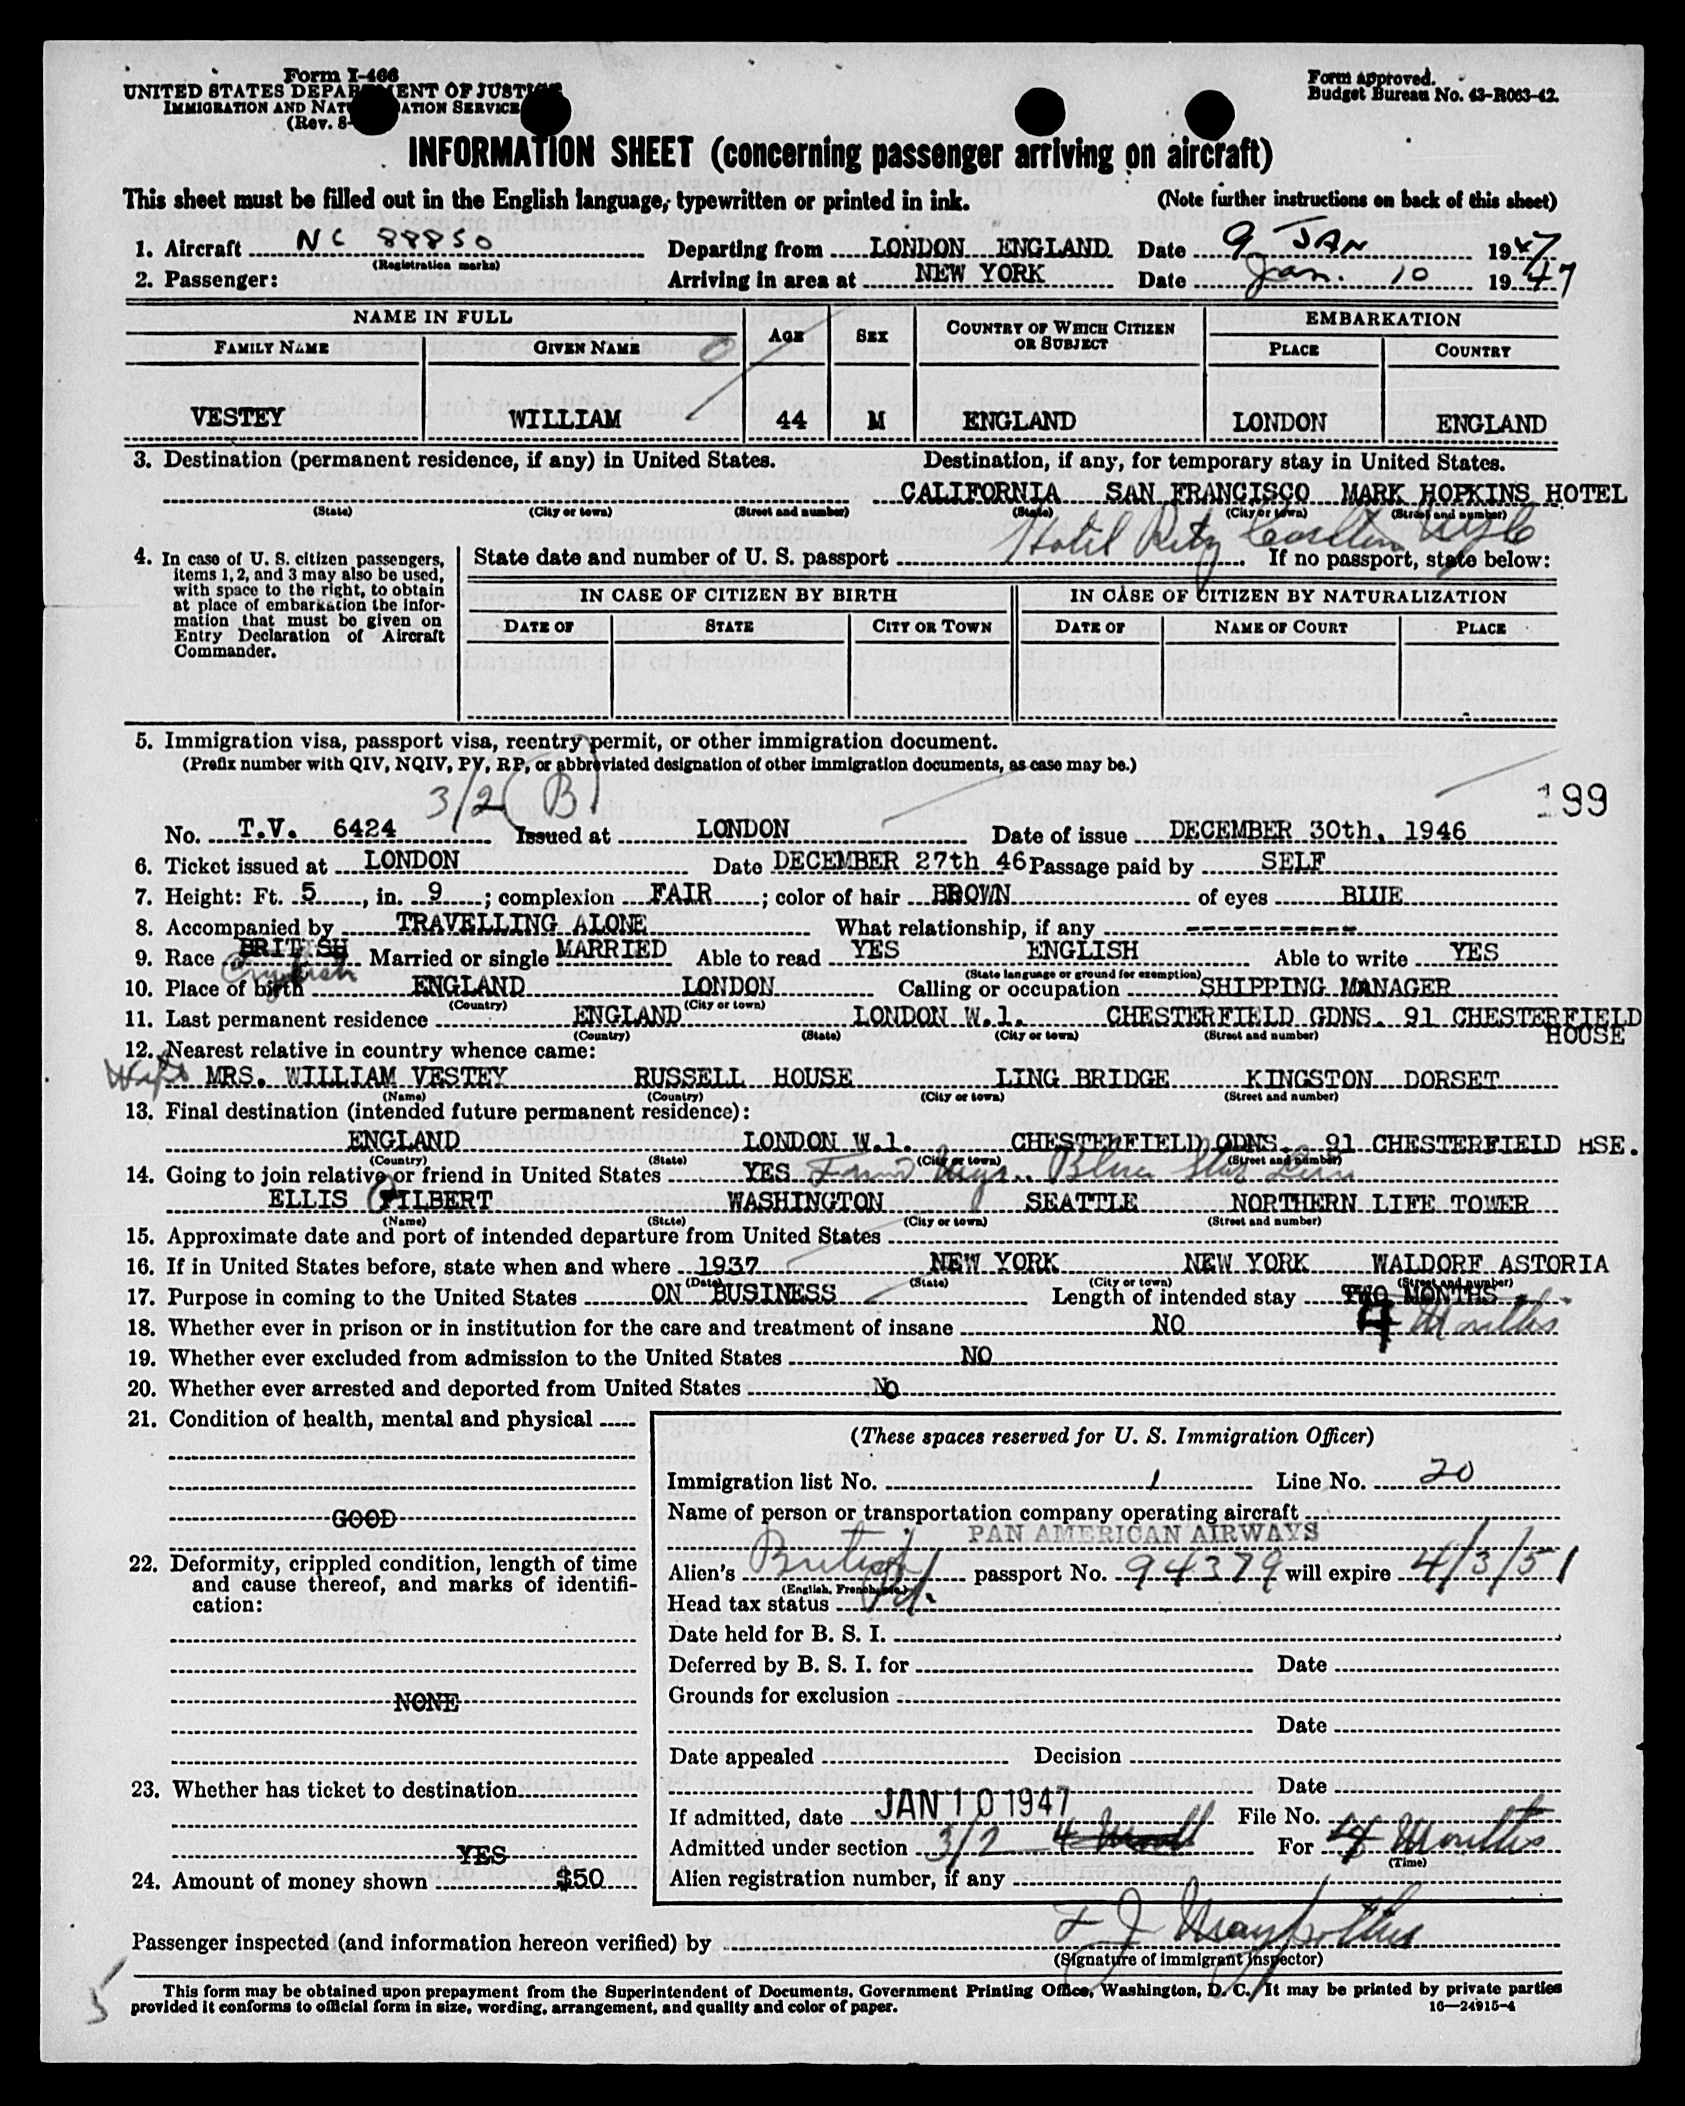 Form I-466
UNITED STATES DEPARTMENT OF JUSTICE
IMMIGRATION AND NATURALIZATION SERVICE
(Rev. 8-
Form approved.
Budget Bureau No. 43-R063-42.
INFORMATION SHEET (concerning passenger arriving on aircraft)
This sheet must be filled out in the English language, typewritten or printed in ink. (Note further instructions on back of this sheet)
1. Aircraft NC 88850 Departing from LONDON ENGLAND Date 9 JAN 1947
(Registration marks)
2. Passenger: Arriving in area at NEW YORK Date Jan. 10 1947
NAME IN FULL AGE SEX COUNTRY OF WHICH CITIZEN OR SUBJECT EMBARKATION
FAMILY NAME GIVEN NAME PLACE COUNTRY
VESTEY WILLIAM 44 M ENGLAND LONDON ENGLAND
3. Destination (permanent residence, if any) in United States. Destination, if any, for temporary stay in United States.
CALIFORNIA SAN FRANCISCO MARK HOPKINS HOTEL
(State) (City or town) (Street and number) (State) (City or town) (Street and number)
Hotel Ritz Carlton NYC
4. In case of U. S. citizen passengers, items 1, 2, and 3 may also be used, with space to the right, to obtain at place of embarkation the information that must be given on Entry Declaration of Aircraft Commander.
State date and number of U. S. passport If no passport, state below:
IN CASE OF CITIZEN BY BIRTH IN CASE OF CITIZEN BY NATURALIZATION
DATE OF STATE CITY OR TOWN DATE OF NAME OF COURT PLACE
5. Immigration visa, passport visa, reentry permit, or other immigration document.
(Prefix number with QIV, NQIV, PV, RP, or abbreviated designation of other immigration documents, as case may be.)
3/2 (B) 199
No. T.V. 6424 Issued at LONDON Date of issue DECEMBER 30th, 1946
6. Ticket issued at LONDON Date DECEMBER 27th 46 Passage paid by SELF
7. Height: Ft. 5, in. 9; complexion FAIR; color of hair BROWN of eyes BLUE
8. Accompanied by TRAVELLING ALONE What relationship, if any ------------
9. Race BRITISH English Married or single MARRIED Able to read YES ENGLISH Able to write YES
(State language or ground for exemption)
10. Place of birth ENGLAND LONDON Calling or occupation SHIPPING MANAGER
(Country) (City or town)
11. Last permanent residence ENGLAND LONDON W.1. CHESTERFIELD GDNS. 91 CHESTERFIELD HOUSE
(Country) (State) (City or town) (Street and number)
12. Nearest relative in country whence came:
Wife MRS. WILLIAM VESTEY RUSSELL HOUSE LING BRIDGE KINGSTON DORSET
(Name) (Country) (City or town) (Street and number)
13. Final destination (intended future permanent residence):
ENGLAND LONDON W.1. CHESTERFIELD GDNS. 91 CHESTERFIELD HSE.
(Country) (State) (City or town) (Street and number)
14. Going to join relative or friend in United States YES Blue Star Line
ELLIS GILBERT WASHINGTON SEATTLE NORTHERN LIFE TOWER
(Name) (State) (City or town) (Street and number)
15. Approximate date and port of intended departure from United States
16. If in United States before, state when and where 1937 NEW YORK NEW YORK WALDORF ASTORIA
(Date) (State) (City or town) (Street and number)
17. Purpose in coming to the United States ON BUSINESS Length of intended stay TWO MONTHS
18. Whether ever in prison or in institution for the care and treatment of insane NO 4 Months
19. Whether ever excluded from admission to the United States NO
20. Whether ever arrested and deported from United States NO
21. Condition of health, mental and physical
GOOD
22. Deformity, crippled condition, length of time and cause thereof, and marks of identification:
NONE
23. Whether has ticket to destination
YES
24. Amount of money shown $50
(These spaces reserved for U. S. Immigration Officer)
Immigration list No. 1 Line No. 20
Name of person or transportation company operating aircraft
PAN AMERICAN AIRWAYS
Alien's British passport No. 94379 will expire 4/3/51
(English, French, etc.)
Head tax status Pd.
Date held for B. S. I.
Deferred by B. S. I. for Date
Grounds for exclusion
Date
Date appealed Decision
Date
If admitted, date JAN 10 1947 File No.
Admitted under section 3/2 For 4 Months
(Time)
Alien registration number, if any
Passenger inspected (and information hereon verified) by
(Signature of immigrant inspector)
This form may be obtained upon prepayment from the Superintendent of Documents, Government Printing Office, Washington, D. C. It may be printed by private parties
provided it conforms to official form in size, wording, arrangement, and quality and color of paper. 16—24915-4